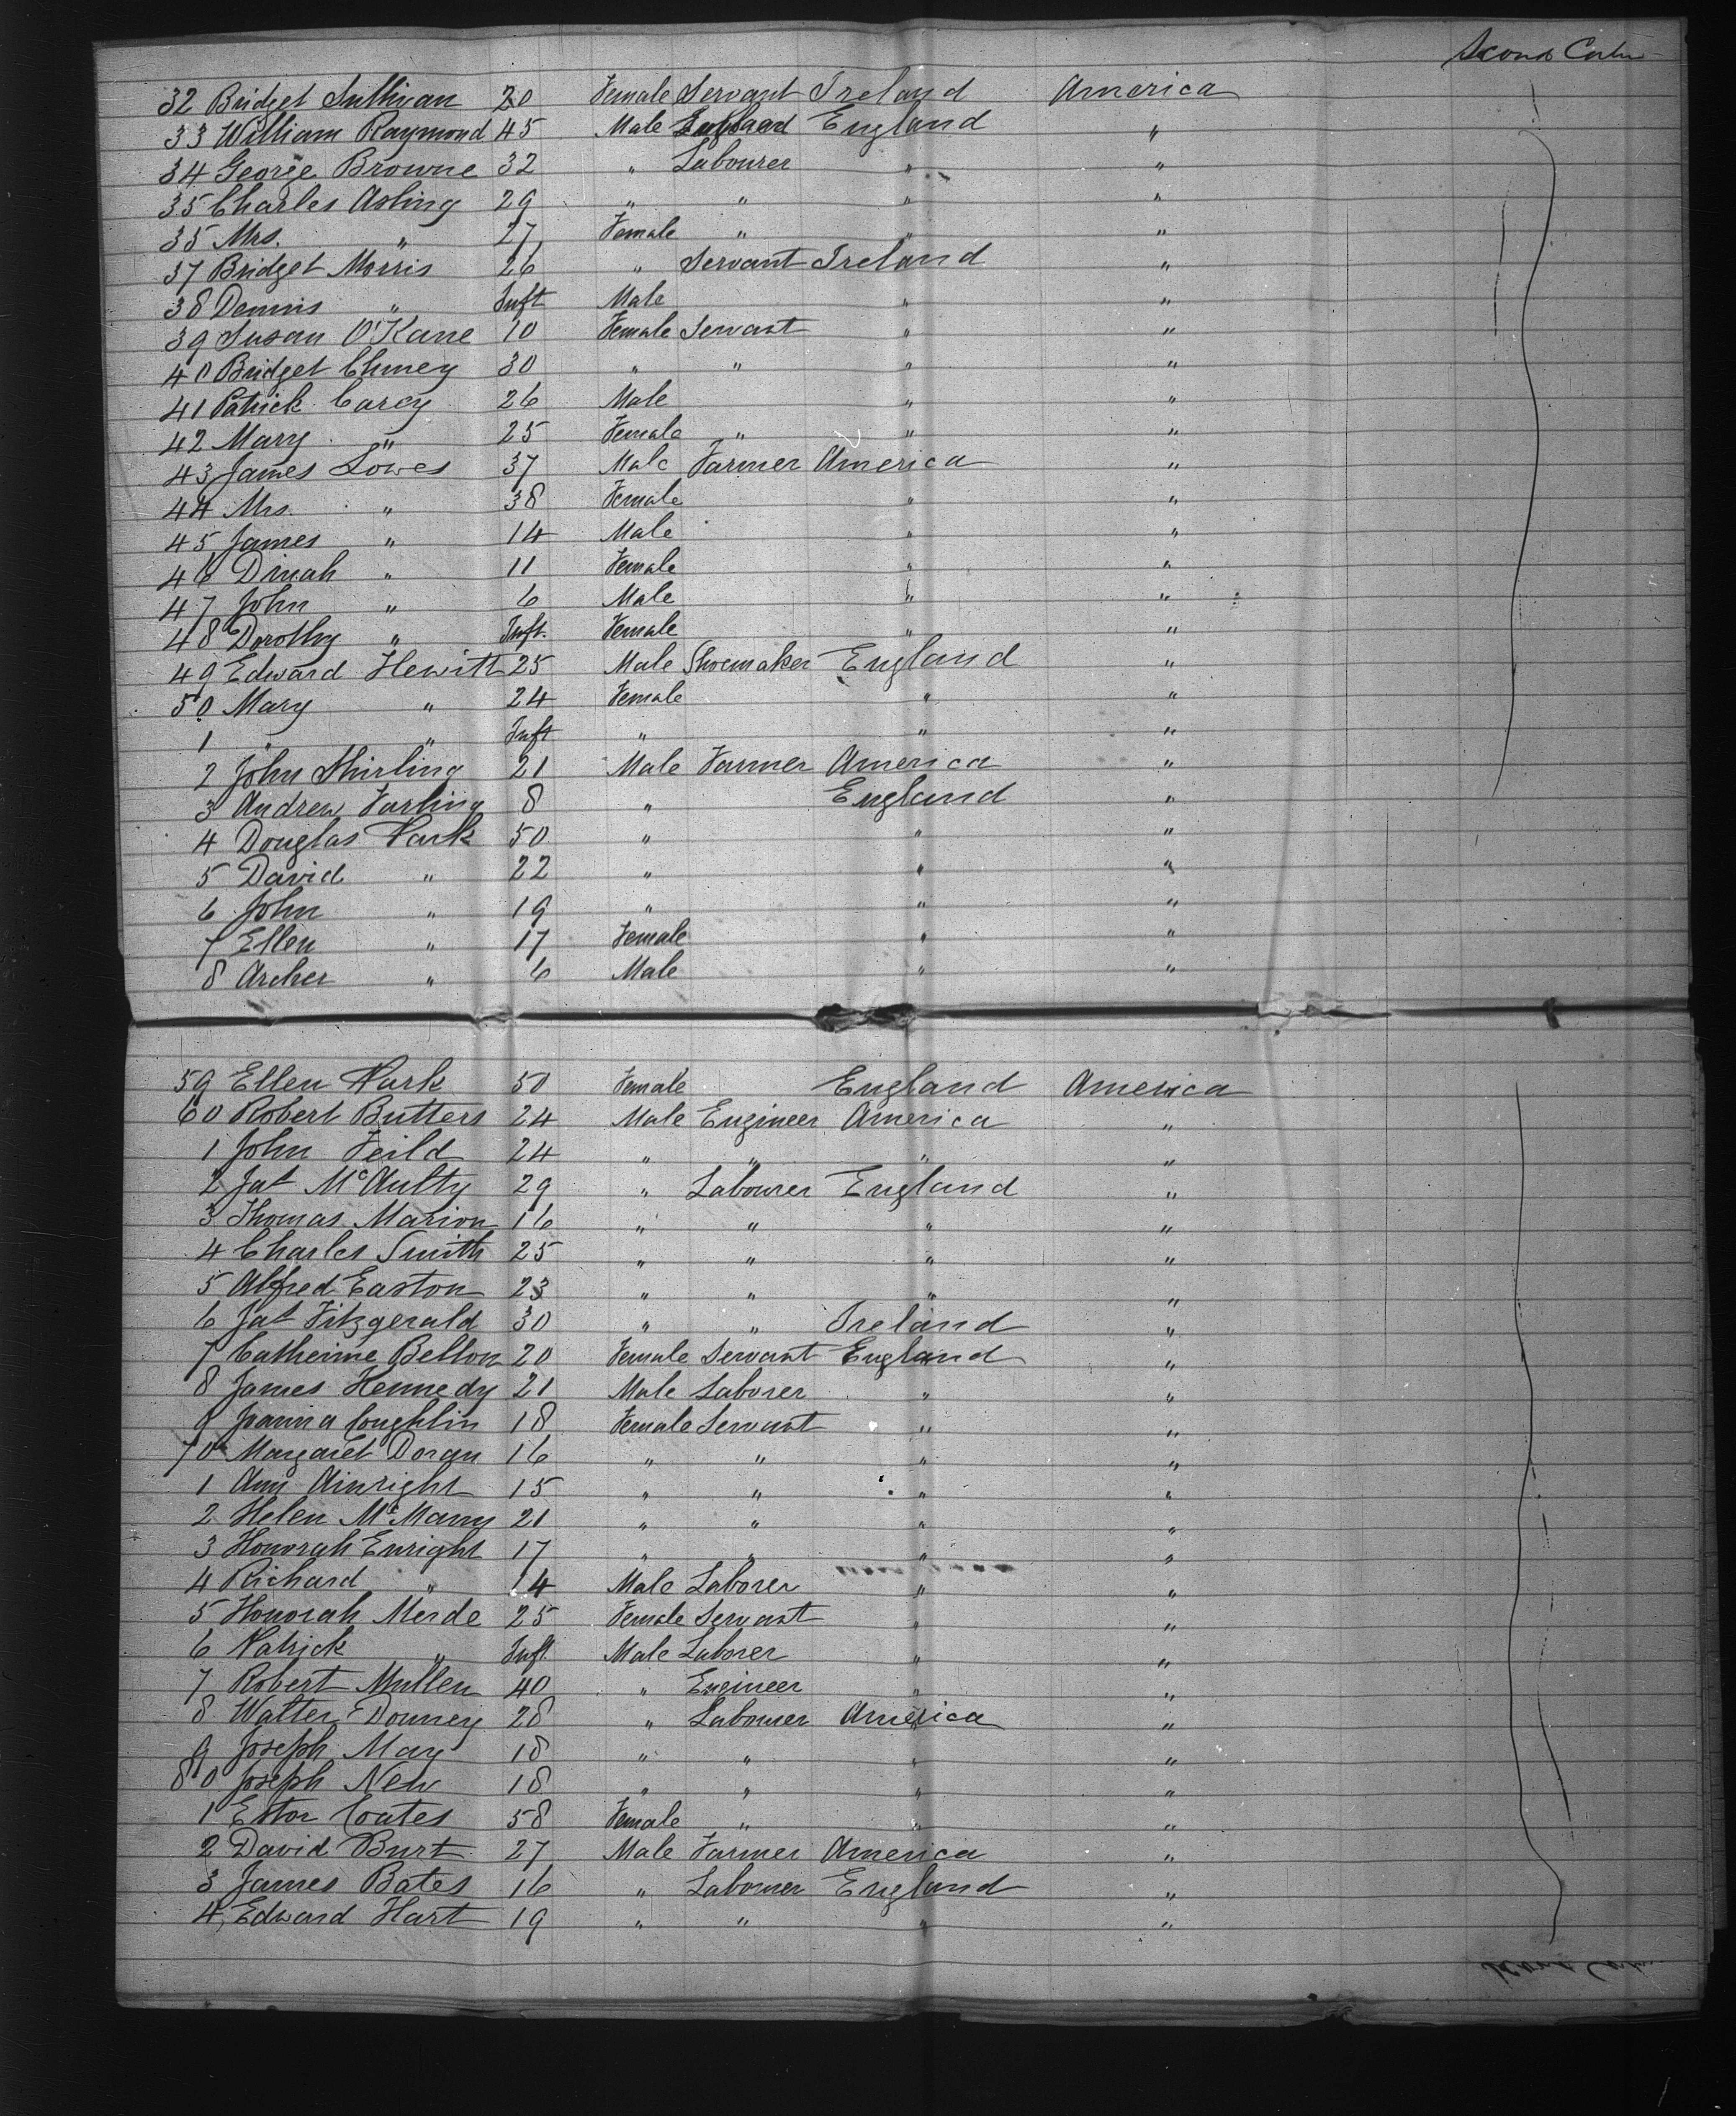 Second Cabin
32 Bridget Sullivan 20 Female Servant Ireland America
33 William Raymond 45 Male England "
34 George Browne 32 " Labourer " "
35 Charles Asling 29 " " " "
35 Mrs. " 27 Female " " "
37 Bridget Morris 26 " Servant Ireland "
38 Dennis " Inft Male " "
39 Susan O'Kane 10 Female Servant " "
40 Bridget 30 " " " "
41 Patrick Carey 26 Male " "
42 Mary " 25 Female " " "
43 James Lowes 37 Male Farmer America "
44 Mrs. " 38 Female " "
45 James " 14 Male " "
46 Dinah " 11 Female " "
47 John " 6 Male " "
48 Dorothy " Inft. Female " "
49 Edward Hewitt 25 Male Shoemaker England "
50 Mary " 24 Female " "
1 " " Inft " " "
2 John Shirling 21 Male Farmer America "
3 Andrew Farling 8 " England "
4 Douglas Park 50 " " "
5 David " 22 " " "
6 John " 19 " " "
7 Ellen " 17 Female " "
8 Archer " 6 Male " "
59 Ellen Park 50 Female England America
60 Robert Butters 24 Male Engineer America "
1 John Feild 24 " " " "
2 Jas McAulty 29 " Labourer England "
3 Thomas Marion 16 " " " "
4 Charles Smith 25 " " " "
5 Alfred Easton 23 " " " "
6 Jas Fitzgerald 30 " " Ireland "
7 Catherine Bellon 20 Female Servant England "
8 James Kennedy 21 Male Laborer " "
9 Joanna Coughlin 18 Female Servant " "
70 Margaret Doran 16 " " " "
1 Ann Ainright 15 " " " "
2 Helen McManny 21 " " " "
3 Honorah Enright 17 " " " "
4 Richard " 14 Male Laborer " "
5 Honorah Merde 25 Female Servant " "
6 Patrick " Inft. Male Laborer " "
7 Robert Mullen 40 " Engineer " "
8 Walter Downey 28 " Labourer America "
9 Joseph May 18 " " " "
80 Joseph New 18 " " " "
1 Estor Coates 58 Female " " "
2 David Burt 27 Male Farmer America "
3 James Bates 16 " Labourer England "
4 Edward Hart 19 " " " "